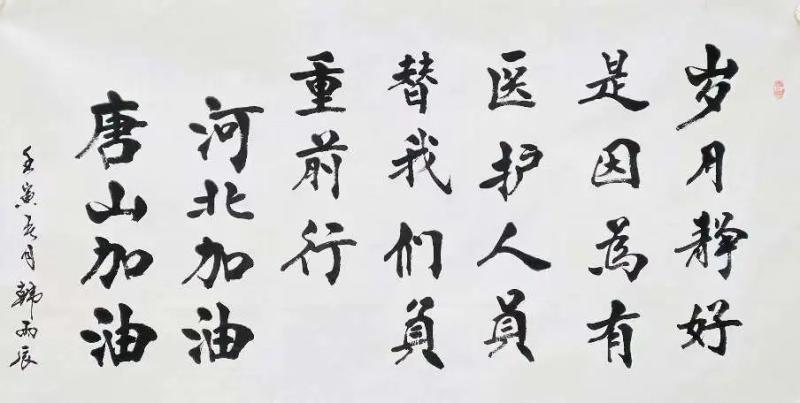 岁月静好
是因為有
医护人员
替我们負
重前行
河北加油
唐山加油
壬寅春月 韩雨辰